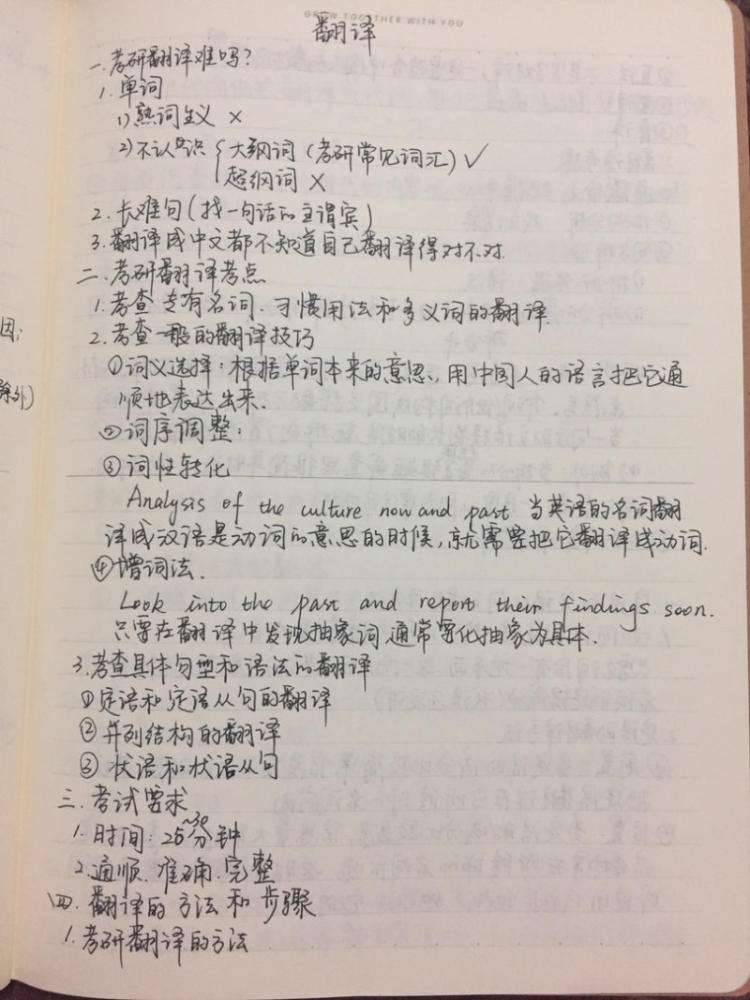 GROW TOGETHER WITH YOU
翻译
一.考研翻译难吗?
1.单词
1)熟词生义 ×
2)不认识 { 大纲词(考研常见词汇)√
超纲词 ×
2.长难句(找一句话的主谓宾)
3.翻译成中文都不知道自己翻译得对不对.
二.考研翻译考点
1.考查专有名词.习惯用法和多义词的翻译.
2.考查一般的翻译技巧
①词义选择:根据单词本来的意思,用中国人的语言把它通
顺地表达出来.
②词序调整:
③词性转化
Analysis of the culture now and past 当英语的名词翻
译成汉语是动词的意思的时候,就需要把它翻译成动词.
④增词法.
Look into the past and report their findings soon.
只要在翻译中发现抽象词,通常要化抽象为具体.
3.考查具体句型和语法的翻译
①定语和定语从句的翻译
②并列结构的翻译
③状语和状语从句
三.考试要求
1.时间:25~30分钟
2.通顺.准确.完整
四.翻译的方法和步骤
1.考研翻译的方法
因:
除外)